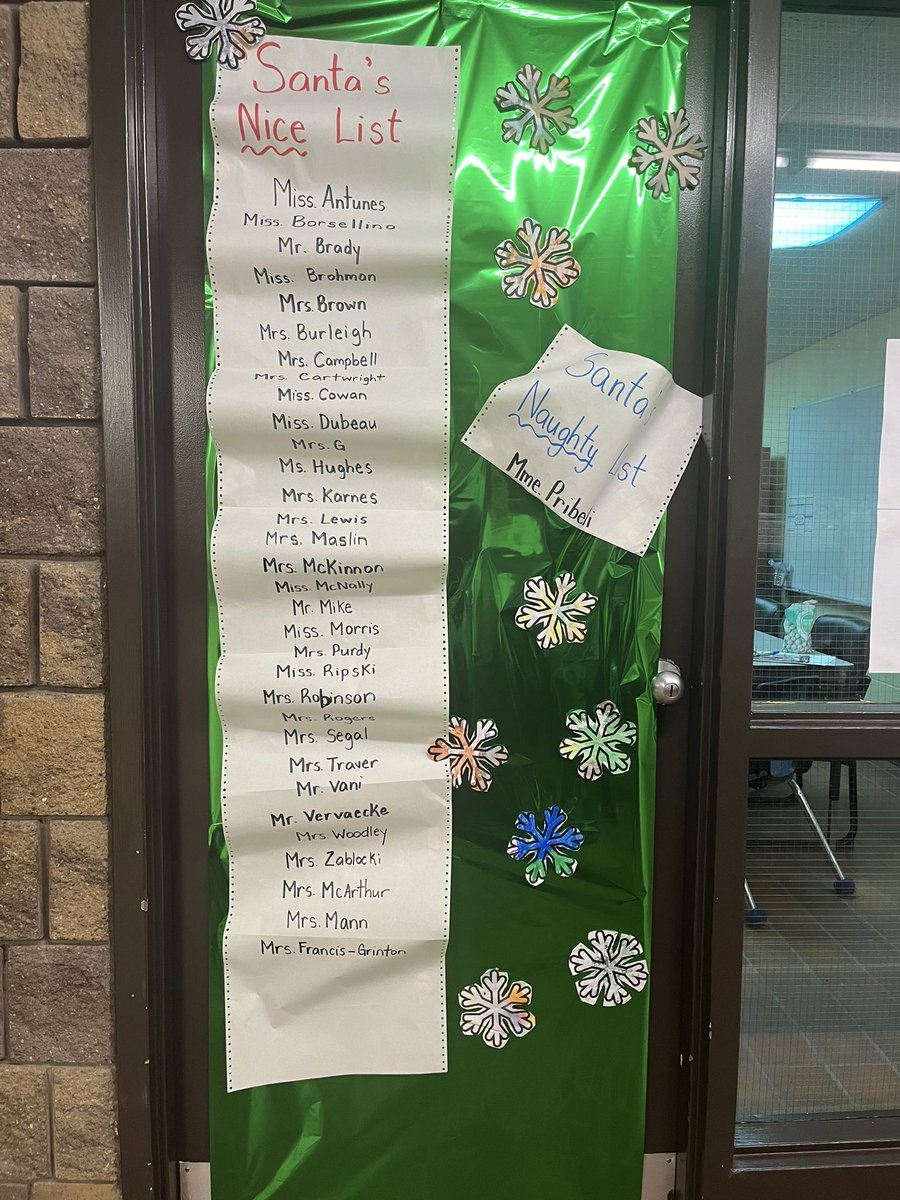 Santa's
Nice List
Miss. Antunes
Miss. Borsellino
Mr. Brady
Miss. Brohman
Mrs. Brown
Mrs. Burleigh
Mrs. Campbell
Mrs. Cartwright
Miss. Cowan
Miss. Dubeau
Mrs. G
Ms. Hughes
Mrs. Karnes
Mrs. Lewis
Mrs. Maslin
Mrs. McKinnon
Miss. McNally
Mr. Mike
Miss. Morris
Mrs. Purdy
Miss. Ripski
Mrs. Robinson
Mrs. Rogers
Mrs. Segal
Mrs. Traver
Mr. Vani
Mr. Vervaecke
Mrs. Woodley
Mrs. Zablocki
Mrs. McArthur
Mrs. Mann
Mrs. Francis-Grinton
Santa's
Naughty List
Mme. Pribeli